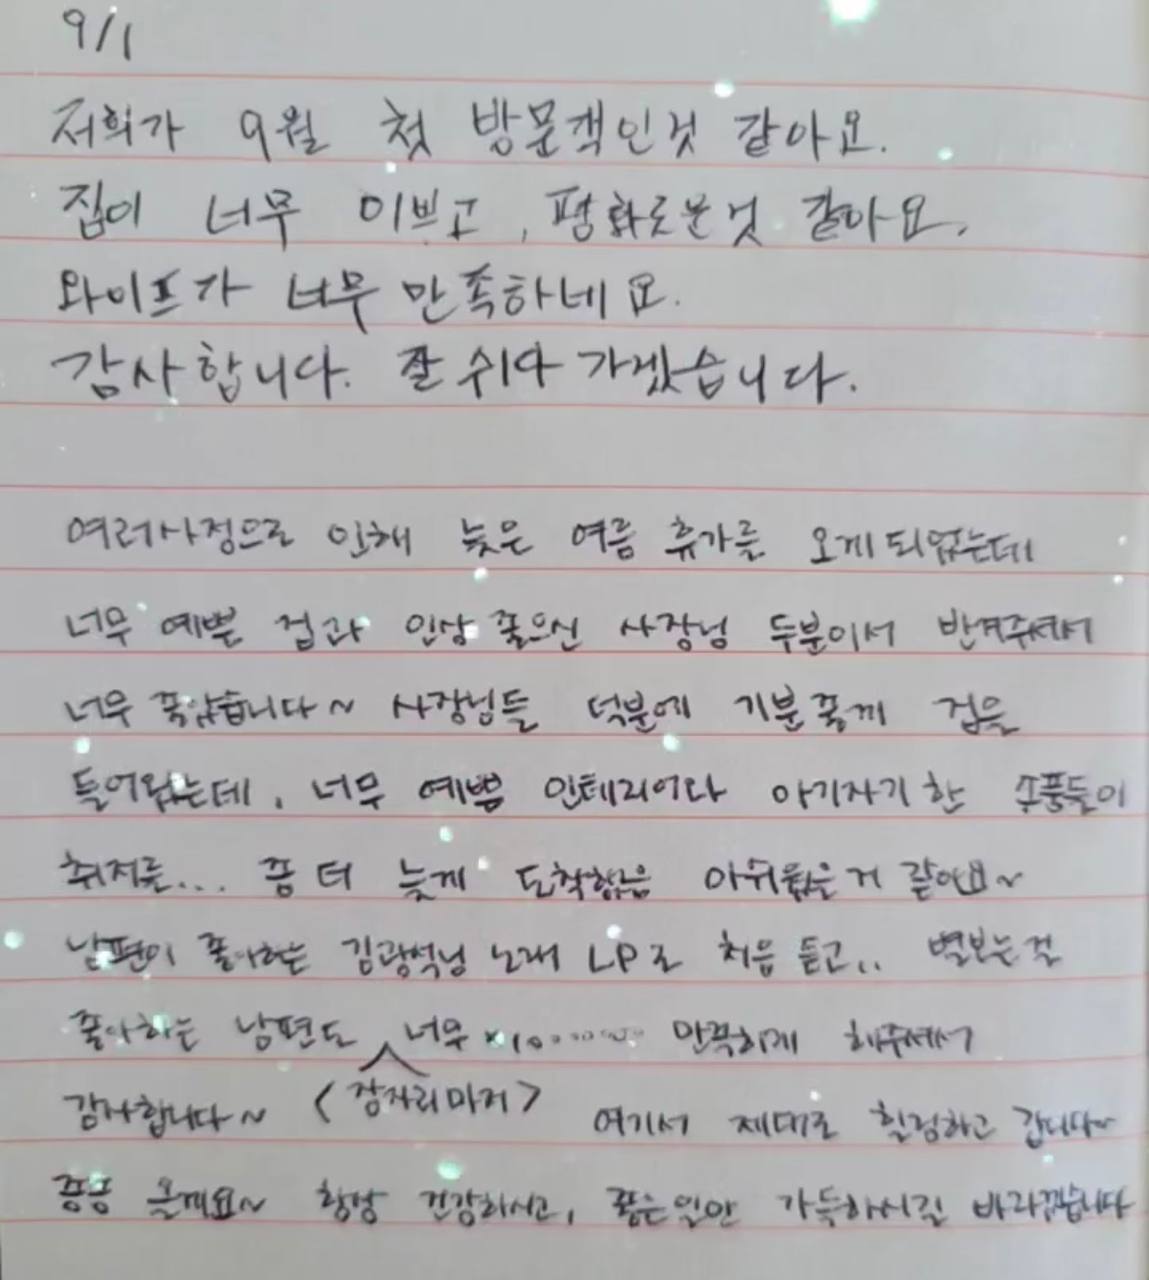 9/1
저희가 9월 첫 방문객인것 같아요.
집이 너무 이쁘고, 평화로운것 같아요.
와이프가 너무 만족하네요.
감사합니다. 잘 쉬다 가겠습니다.
여러사정으로 인해 늦은 여름 휴가를 오게되었는데
너무 예쁜 집과 인상 좋으신 사장님 두분이서 반겨주셔서
너무 좋았습니다~ 사장님들 덕분에 기분좋게 집을
들어왔는데, 너무 예쁜 인테리어와 아기자기한 소품들이
취저를... 좀 더 늦게 도착했음 아쉬웠을거 같아요~
남편이 좋아하는 김광석님 노래 LP로 처음 듣고.. 별보는걸
좋아하는 남편도 너무 만족하게 해주셔서
<잠자리마저>
감사합니다~ 여기서 제대로 힐링하고 갑니다~
종종 올게요~ 항상 건강하시고, 좋은일만 가득하시길 바라겠습니다